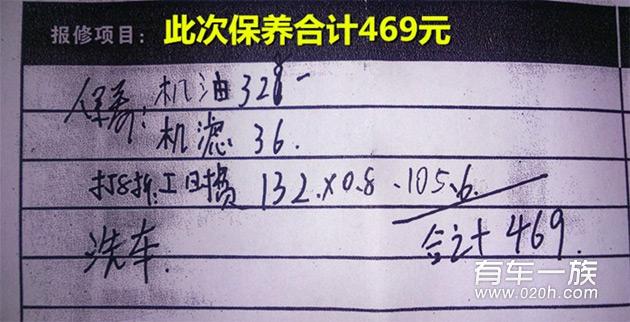 报修项目: 此次保养合计469元
保养: 机油 328一
机滤 36.
打8折: 工时费 132.×0.8 .105.6
洗车. 合计 469.
有车一族
www.020h.com